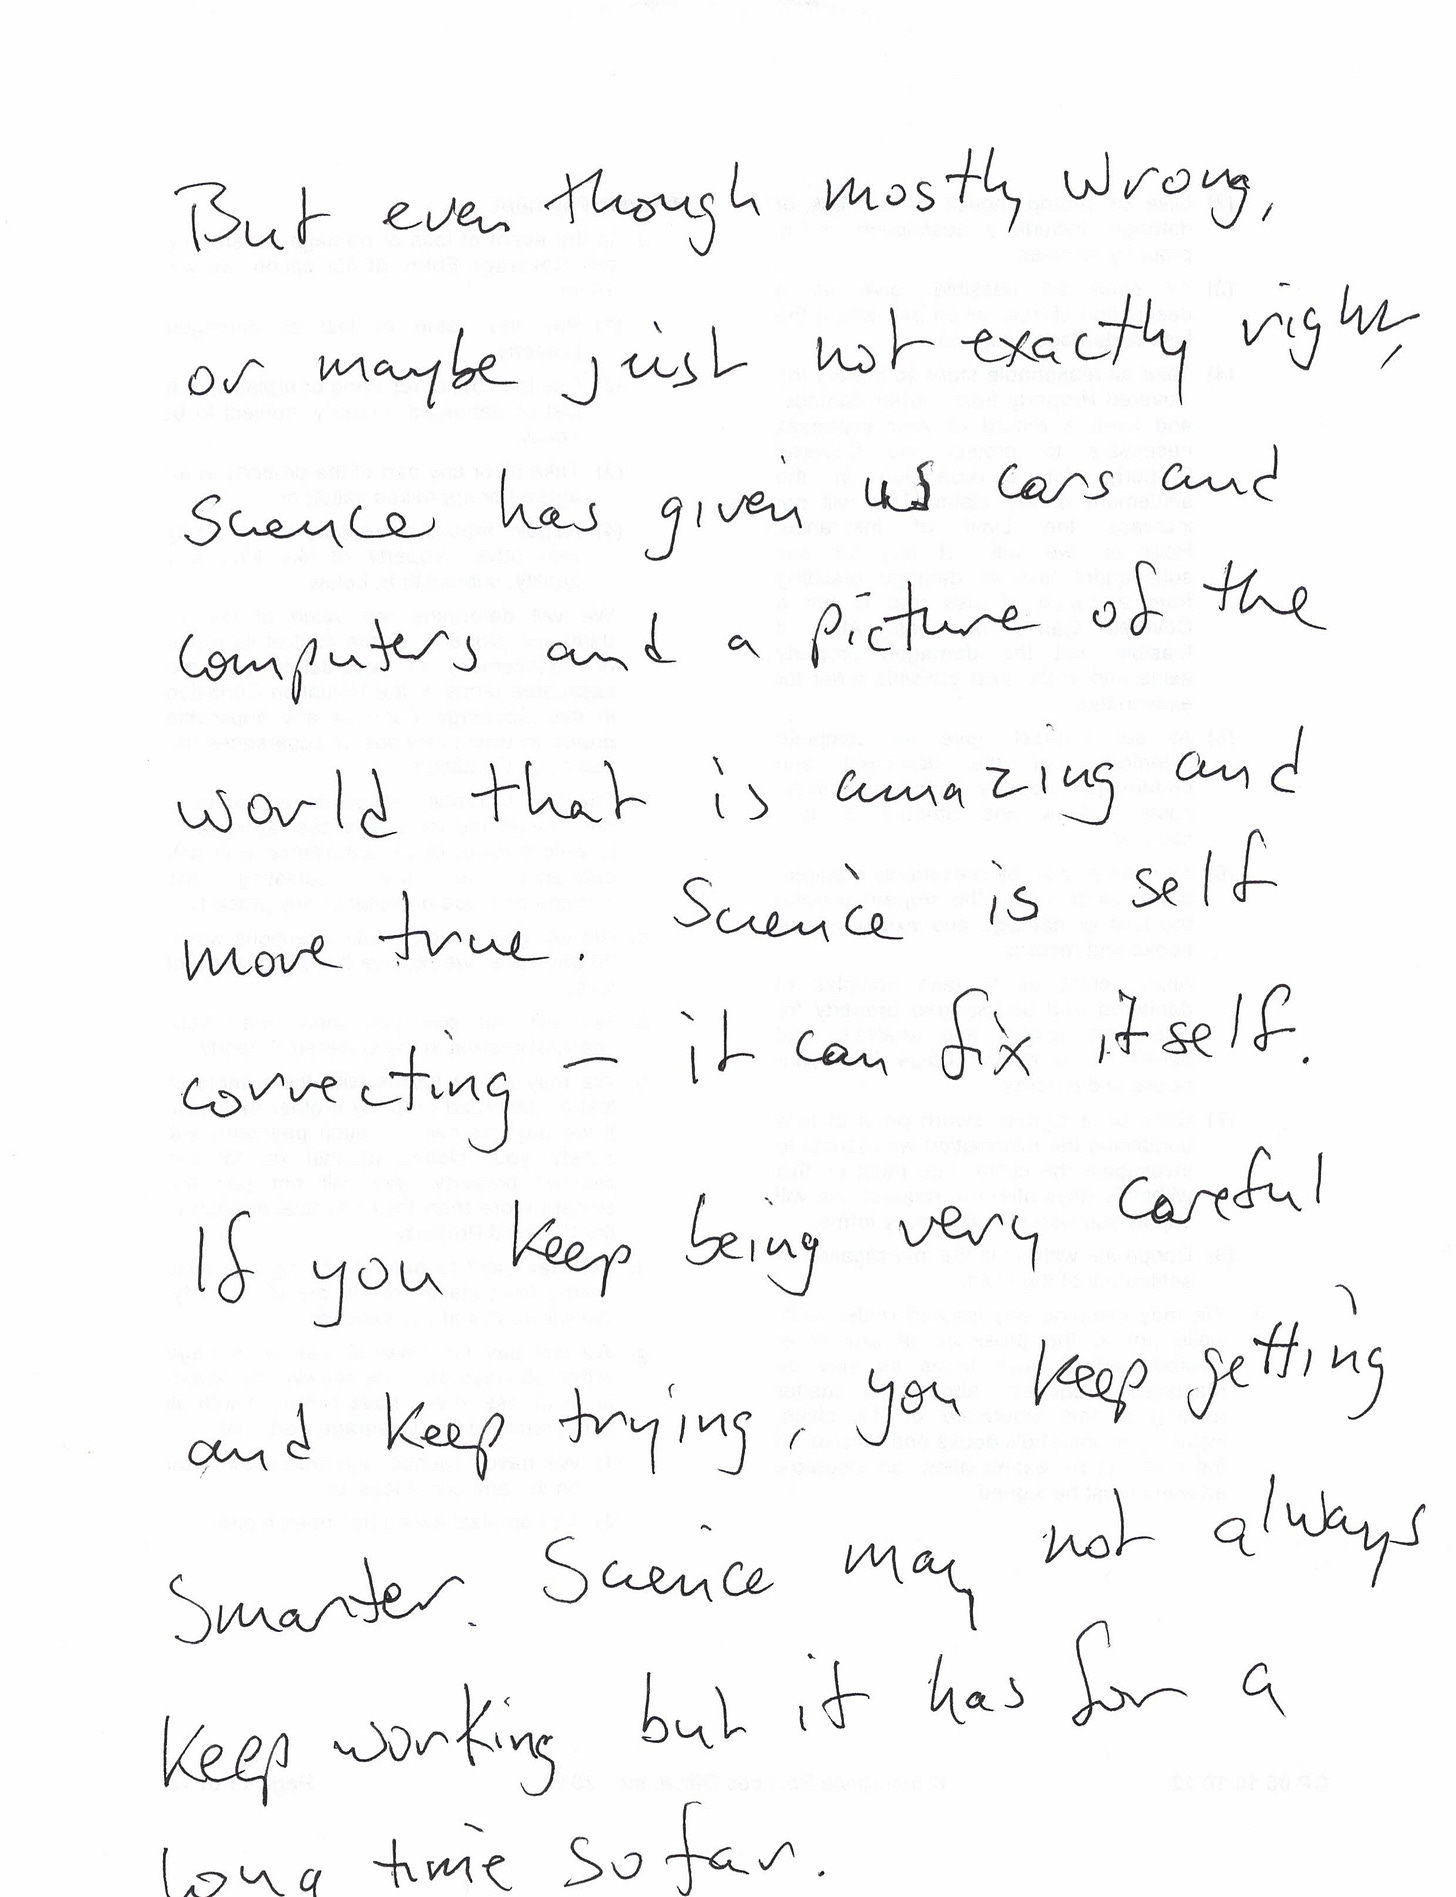 But even though mostly wrong,
or maybe just not exactly right,
science has given us cars and
computers and a picture of the
world that is amazing and
more true. Science is self
correcting – it can fix itself.
If you keep being very careful
and keep trying, you keep getting
smarter. Science may not always
keep working but it has for a
long time so far.